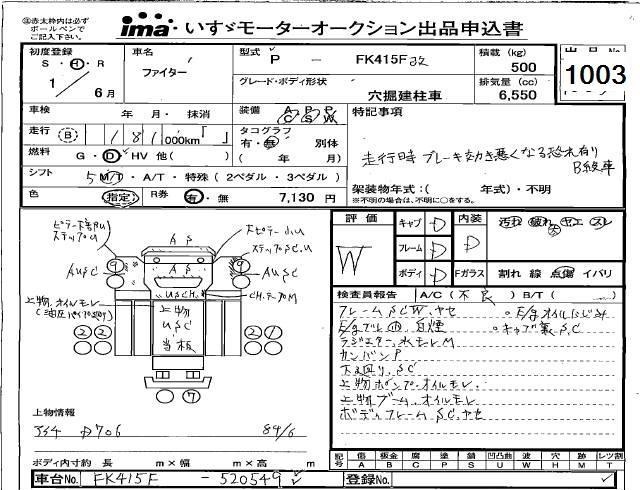 赤太枠内は必ず
ボールペンで
ご記入下さい。
ima いすゞモーターオークション出品申込書
初度登録
S・H・R
1/6月
車名
ファイター
型式
P - FK415F改
グレード・ボディ形状
穴掘建柱車
積載 (kg)
500
排気量 (cc)
6,550
1003
車検 年 月・ 抹消
装備 A/C P/S P/W
特記事項
走行 B 181,000km「 」
タコグラフ
有・無 別体
( 年 月)
走行時ブレーキ効き悪くなる恐れ有り
B級車
燃料 G・D・HV 他( )
シフト 5 M/T・A/T・特殊 (2ペダル・3ペダル)
架装物年式:( 年式)・不明
※不明の場合は、不明に○をする。
色 指定
R券 有・無 7,130 円
評価
W
キャブ D
フレーム D
ボディ D
内装 D
汚れ 破れ ヤエ スレ
大
Fガラス 割れ 線 点傷 イバリ
検査員報告 A/C (不良) B/T ( )
フレームSCW.ヤセ
。E/gオイルにじみ
E/gブルH 白煙
。キャブ裏S,C
ラジエター.水モレM
カンバンP
下廻り.SC
上物ポンプ.オイルモレ.
上物ブーム.オイルモレ.
ボディフレーム SC.ヤセ
ステップU
AP
AP
ステップSC.U
AUSC
9
9
AUSC
USCH
上物.オイルモレ
上物
USC
当板
2 2
2 1
7
上物情報
D706 89/6
ボディ内寸約 長 m×幅 m×高 m
記号
傷 板金 腐 塗 錆 凹凸曲 波 穴 跡 レッツ割
A B C P S U W H M T
車台No. FK415F - 520549
登録No.